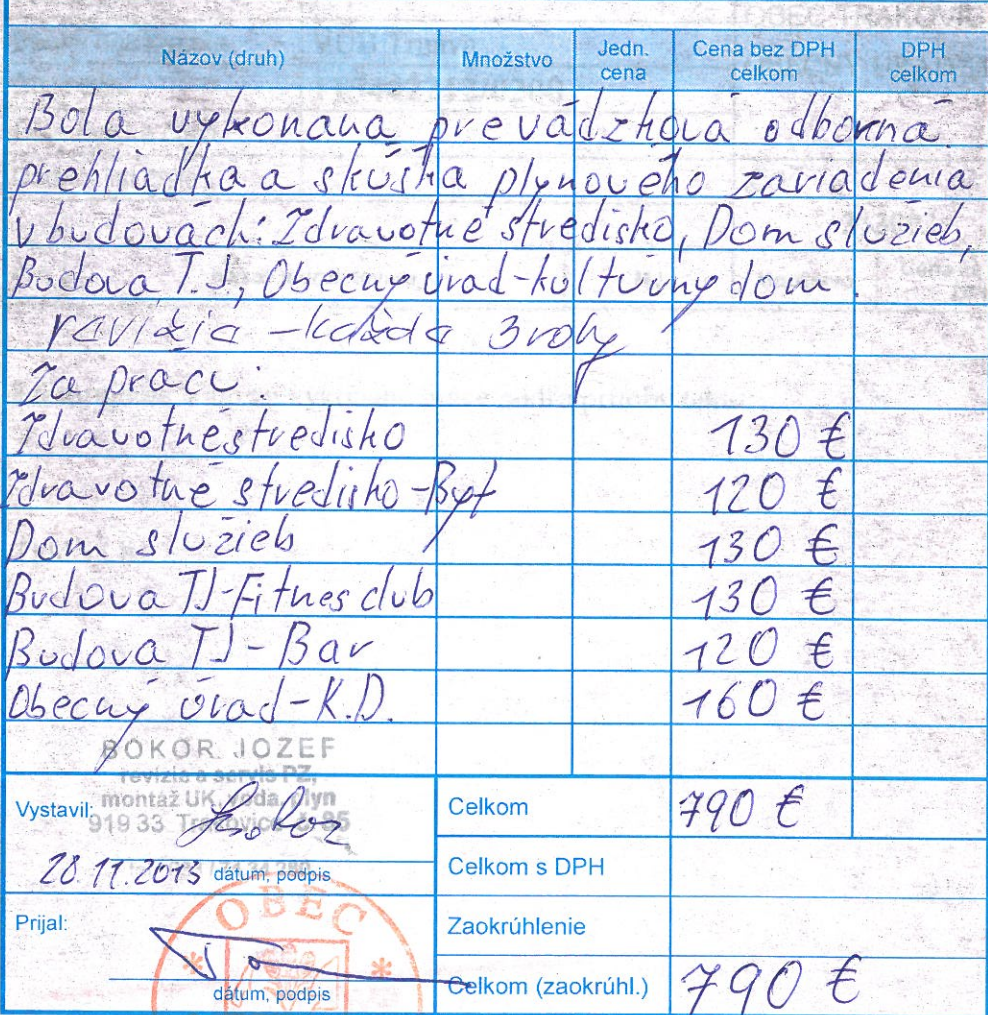 Názov (druh) Množstvo Jedn. cena Cena bez DPH celkom DPH celkom
Bola vykonaná prevádzková odborná
prehliadka a skúška plynového zariadenia
v budovách: Zdravotné stredisko, Dom služieb,
Budova T.J, Obecný úrad-kultúrny dom.
revízia - každé 3 roky
Za prácu:
Zdravotné stredisko 130 €
Zdravotné stredisko-Byt 120 €
Dom služieb 130 €
Budova TJ-Fitnes club 130 €
Budova TJ-Bar 120 €
Obecný úrad-K.D. 160 €
BOKOR JOZEF
revízie a servis PZ,
montáž UK, voda, plyn
919 33 85
Vystavil:
28.11.2013 dátum, podpis
Celkom 790 €
Celkom s DPH
Prijal:
OBEC
dátum, podpis
Zaokrúhlenie
Celkom (zaokrúhl.) 790 €